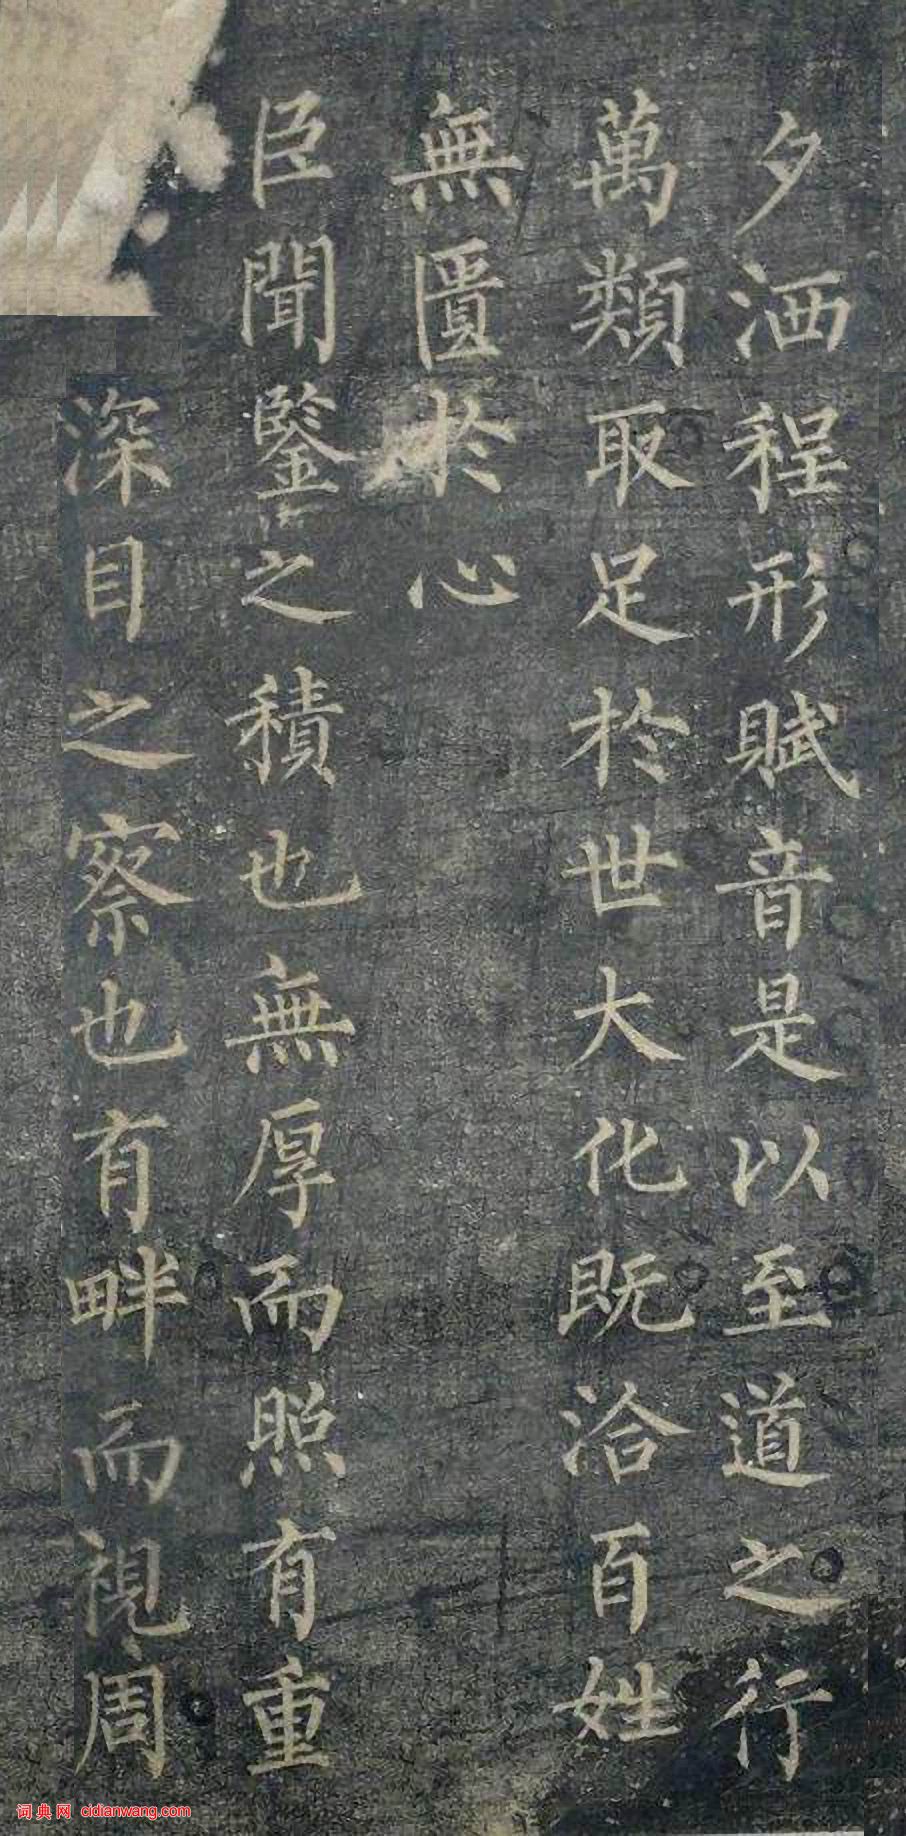 夕洒程形賦音是以至道之行
萬類取足於世大化既洽百姓
無匱於心
臣聞鑒之積也無厚而照有重
深目之察也有畔而視周
词典网 cidianwang.com